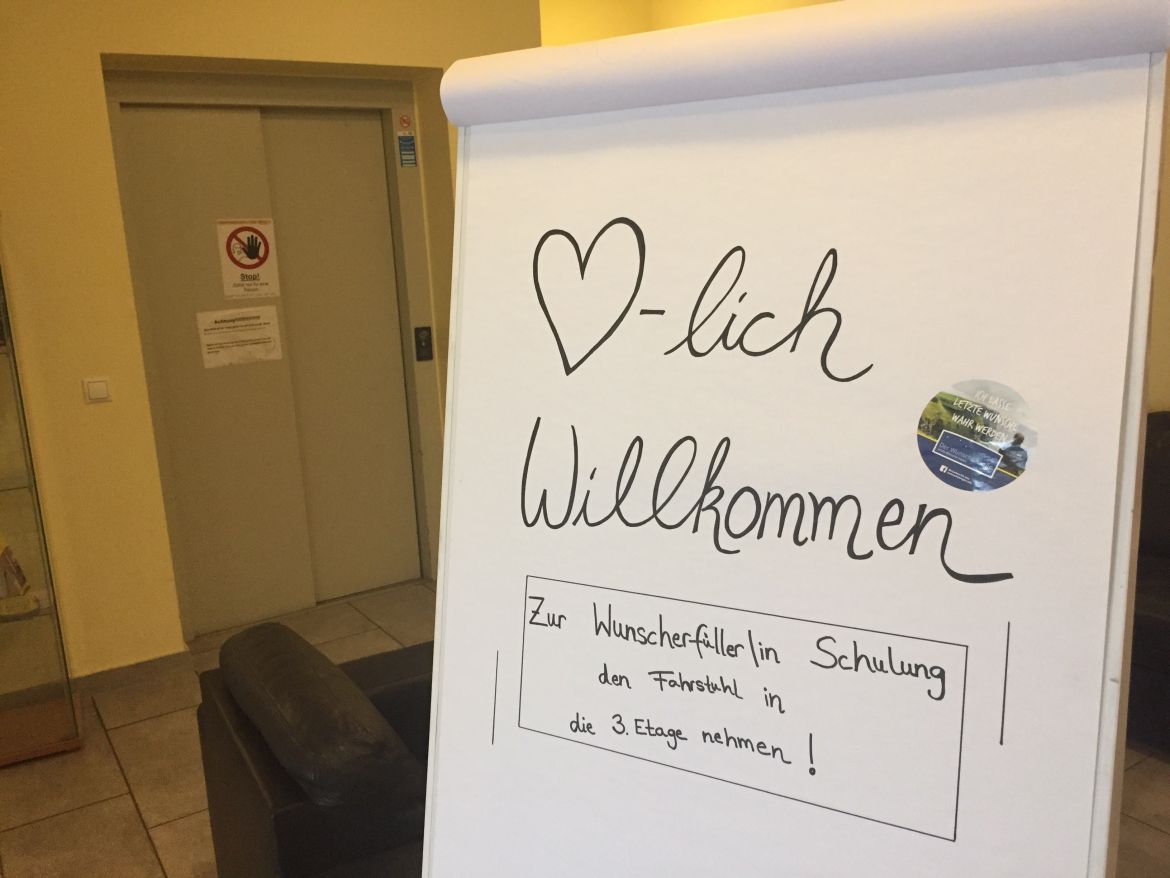 ♡-lich
Willkommen
ICH LASSE
LETZTE WÜNSCHE
WAHR WERDEN
Zur Wunscherfüller/in Schulung
den Fahrstuhl in
die 3. Etage nehmen!
Stop!